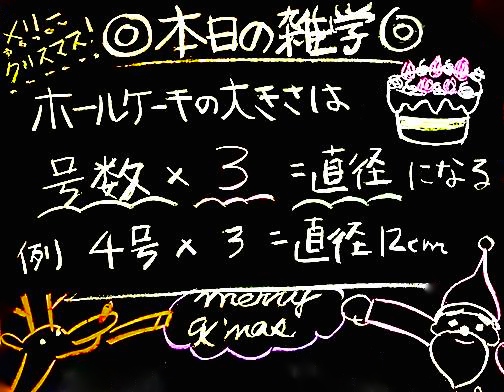 メリークリスマス!
◎本日の雑学◎
ホールケーキの大きさは
号数×3=直径になる
例) 4号×3=直径12cm
merry
x'mas